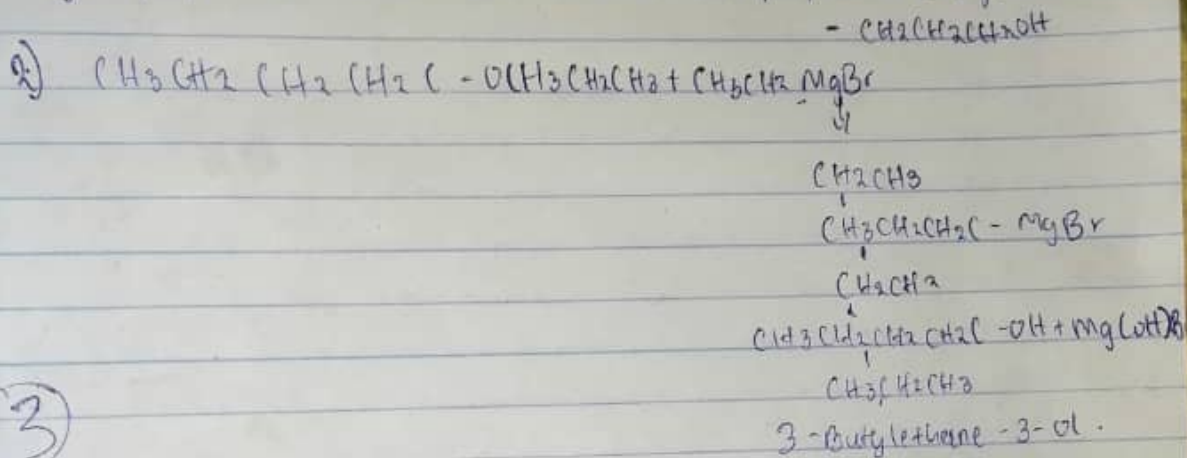 - CH2CH2CH2OH
2) CH3CH2CH2CH2C - OCH3CH2CH3 + CH3CH2MgBr
CH2CH3
CH3CH2CH2C - MgBr
CH2CH2
CH3CH2CH2CH2C - OH + Mg(OH)B
CH3CH2CH3
3 - Butylethene - 3 - Ol.
3